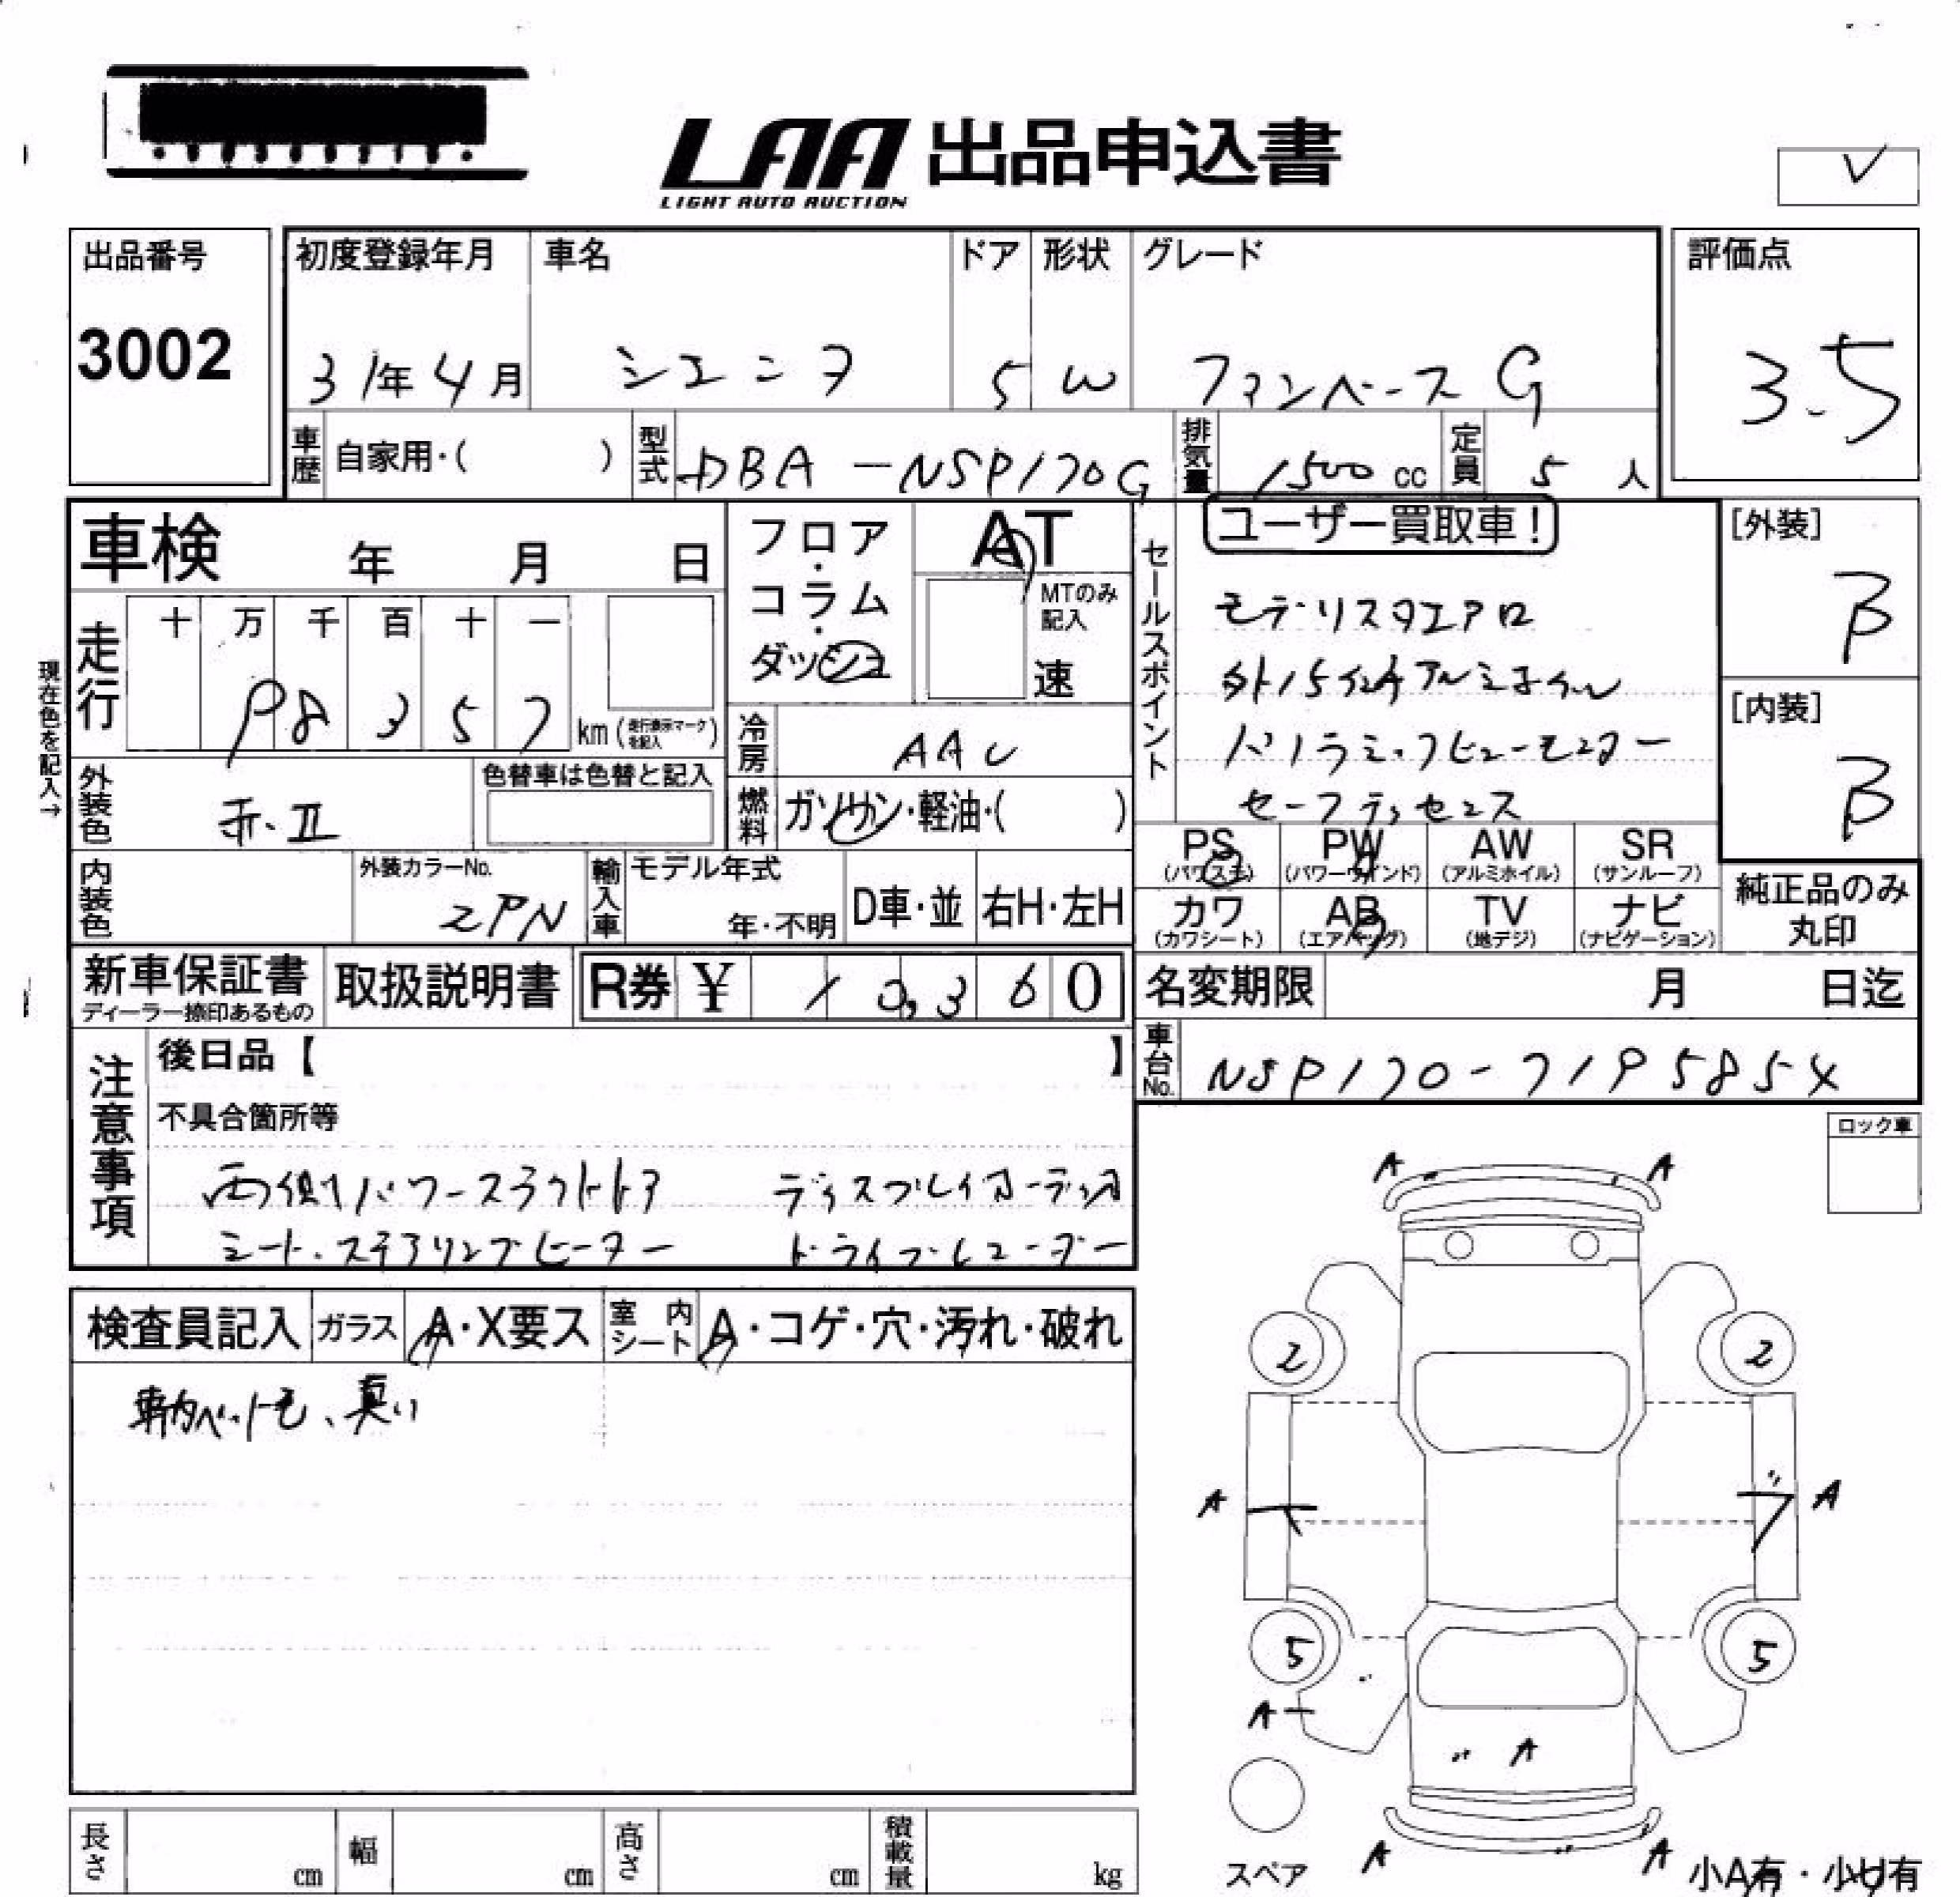 LAA 出品申込書
LIGHT AUTO AUCTION
出品番号
3002
初度登録年月
31年4月
車名
シエンタ
ドア
5
形状
W
グレード
ファンベースG
評価点
3.5
車歴 自家用・( )
型式 DBA-NSP170G
排気量 1500 cc
定員 5 人
車検 年 月 日
フロア・コラム・ダッシュ
AT
MTのみ記入
速
セールスポイント
ユーザー買取車!
モデリスタエアロ
外15インチアルミホイール
パノラミックビューモニター
セーフティセンス
[外装]
B
[内装]
B
走行
十 万 千 百 十 一
98357
km(走行表示マークを記入)
現在色を記入→
冷房 AAC
外装色 赤II
色替車は色替と記入
燃料 ガソリン・軽油・( )
PS (パワステ)
PW (パワーウインド)
AW (アルミホイル)
SR (サンルーフ)
内装色
外装カラーNo.
2PN
輸入車
モデル年式
年・不明
D車・並
右H・左H
カワ (カワシート)
AB (エアバッグ)
TV (地デジ)
ナビ (ナビゲーション)
純正品のみ丸印
新車保証書
ディーラー捺印あるもの
取扱説明書
R券 ¥ 10,360
名変期限 月 日迄
注意事項
後日品【 】
不具合箇所等
両側パワースライドドア ディスプレイオーディオ
シート・ステアリングヒーター ドライブレコーダー
車台No. NSP170-7195854
ロック車
検査員記入
ガラス A・X要ス
室内シート A・コゲ・穴・汚れ・破れ
車内ペット毛、臭い
A A
2 2
A A
5 5
A
A
A A
スペア
小A有・小U有
長さ cm
幅 cm
高さ cm
積載量 kg